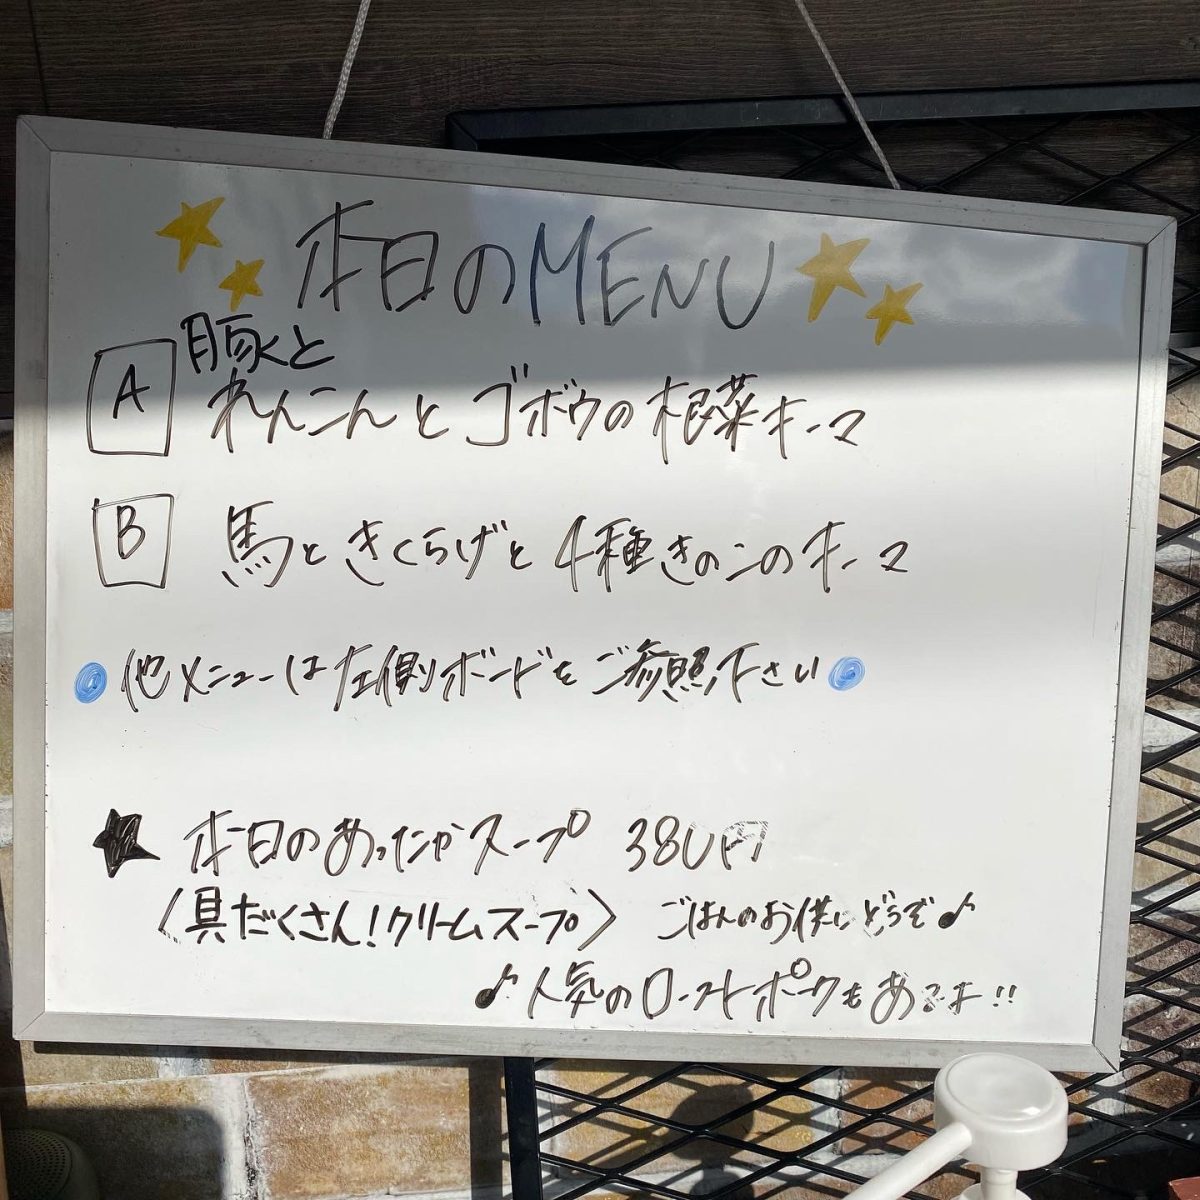 本日のMENU
A 豚と
れんこんとゴボウの根菜キーマ
B 馬ときくらげと4種きのこのキーマ
他メニューは左側ボードをご参照下さい
★ 本日のあったかスープ 380円
〈具だくさん!クリームスープ〉 ごはんのお供にどうぞ♪
♪人気のローストポークもあるよ!!